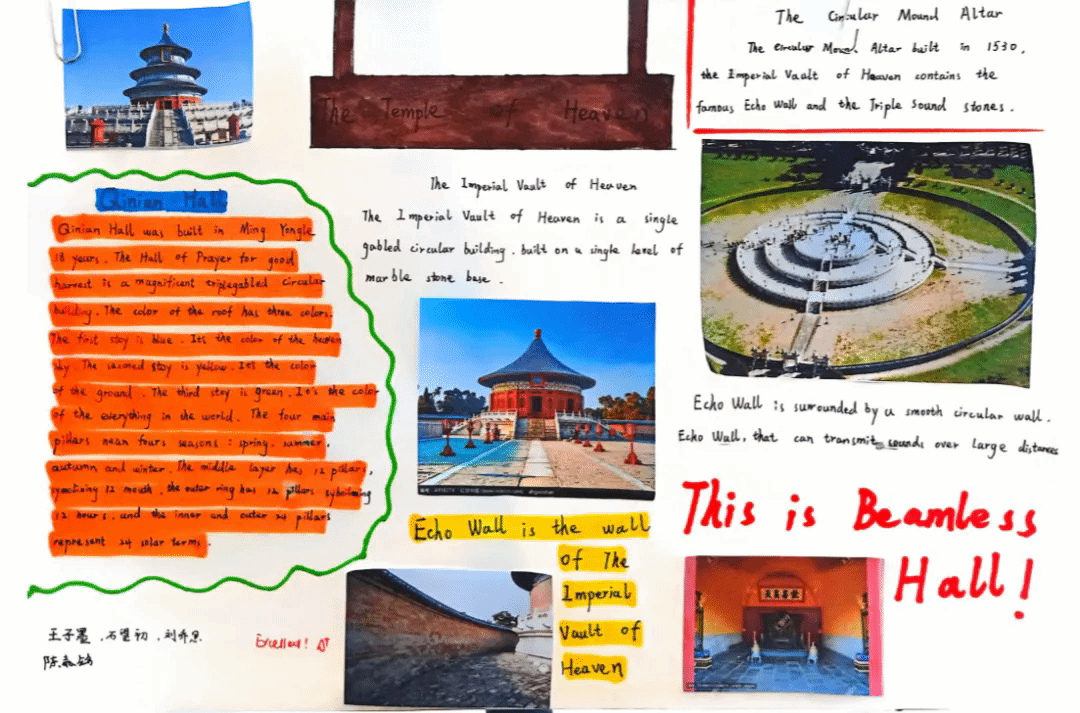 The Temple of Heaven
Qinian Hall
Qinian Hall was built in Ming Yongle
18 years. The Hall of Prayer for good
harvest is a magnificent triplegabled circular
building. The color of the roof has three colors.
The first stoy is blue. It's the color of the heaven
sky. The second stoy is yellow. It's the color
of the ground. The third stoy is green. It's the color
of the everything in the world. The four main
pillars mean fours seasons: spring, summer,
autumn and winter. The middle layer has 12 pillars,
12 mouth, the outer ring has 12 pillars
12 hours. and the inner and outer 24 pillars
represent 24 solar terms.
王子墨
Excellent!
The Imperial Vault of Heaven
The Imperial Vault of Heaven is a single
gabled circular building, built on a single level of
marble stone base.
Echo Wall is the wall
of The
Imperial
Vault of
Heaven
The Circular Mound Altar
The Circular Altar built in 1530,
the Imperial Vault of Heaven contains the
famous Echo Wall and the Triple Sound stones.
Echo Wall is surrounded by a smooth circular wall.
Echo Wall, that can transmit sounds over large distances
This is Beamless
Hall!